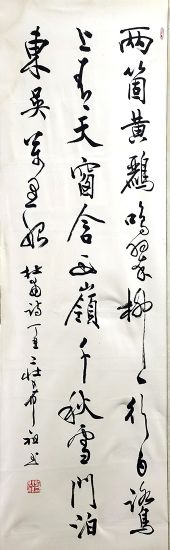 两箇黄鸝鳴翠柳一行白鷺
上青天窗含西嶺千秋雪門泊
東吳萬里船 杜甫诗